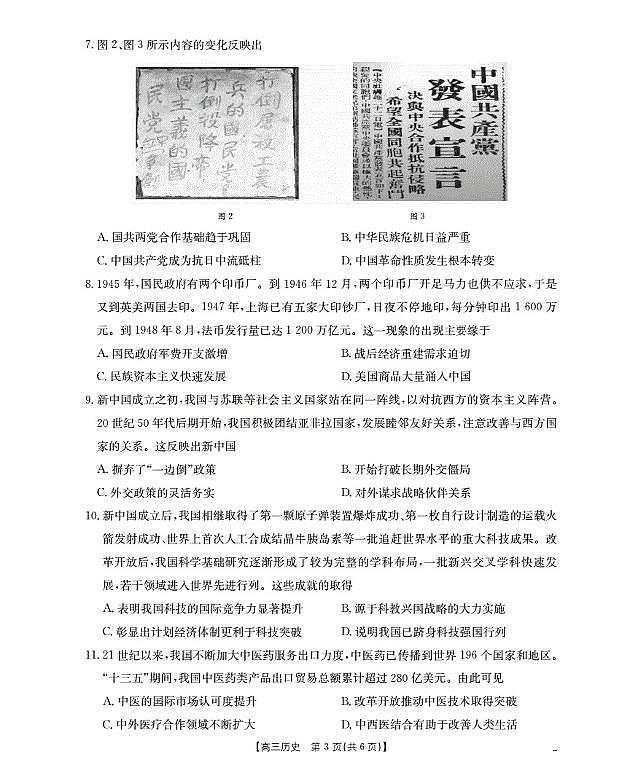 7. 图 2、图 3 所示内容的变化反映出
打倒屠杀工农
兵的国民党
打倒投降帝
国主义的国
民党
中國共產黨
發表宣言
決與中央合作抵抗侵略
希望全國同胞共起奮鬥
图 2
图 3
A. 国共两党合作基础趋于巩固
B. 中华民族危机日益严重
C. 中国共产党成为抗日中流砥柱
D. 中国革命性质发生根本转变
8. 1945 年,国民政府有两个印币厂。到 1946 年 12 月,两个印币厂开足马力也供不应求,于是
又到英美两国去印。1947 年,上海已有五家大印钞厂,日夜不停地印,每分钟印出 1 600 万
元。到 1948 年 8 月,法币发行量已达 1 200 万亿元。这一现象的出现主要缘于
A. 国民政府军费开支激增
B. 战后经济重建需求迫切
C. 民族资本主义快速发展
D. 美国商品大量涌入中国
9. 新中国成立之初,我国与苏联等社会主义国家站在同一阵线,以对抗西方的资本主义阵营。
20 世纪 50 年代后期开始,我国积极团结亚非拉国家,发展睦邻友好关系,注意改善与西方国
家的关系。这反映出新中国
A. 摒弃了“一边倒”政策
B. 开始打破长期外交僵局
C. 外交政策的灵活务实
D. 对外谋求战略伙伴关系
10. 新中国成立后,我国相继取得了第一颗原子弹装置爆炸成功、第一枚自行设计制造的运载火
箭发射成功、世界上首次人工合成结晶牛胰岛素等一批追赶世界水平的重大科技成果。改
革开放后,我国科学基础研究逐渐形成了较为完整的学科布局,一批新兴交叉学科快速发
展,若干领域进入世界先进行列。这些成就的取得
A. 表明我国科技的国际竞争力显著提升
B. 源于科教兴国战略的大力实施
C. 彰显出计划经济体制更利于科技突破
D. 说明我国已跻身科技强国行列
11. 21 世纪以来,我国不断加大中医药服务出口力度,中医药已传播到世界 196 个国家和地区。
“十三五”期间,我国中医药类产品出口贸易总额累计超过 280 亿美元。由此可见
A. 中医的国际市场认可度提升
B. 改革开放推动中医技术取得突破
C. 中外医疗合作领域不断扩大
D. 中西医结合有助于改善人类生活
【高三历史 第 3 页(共 6 页)】